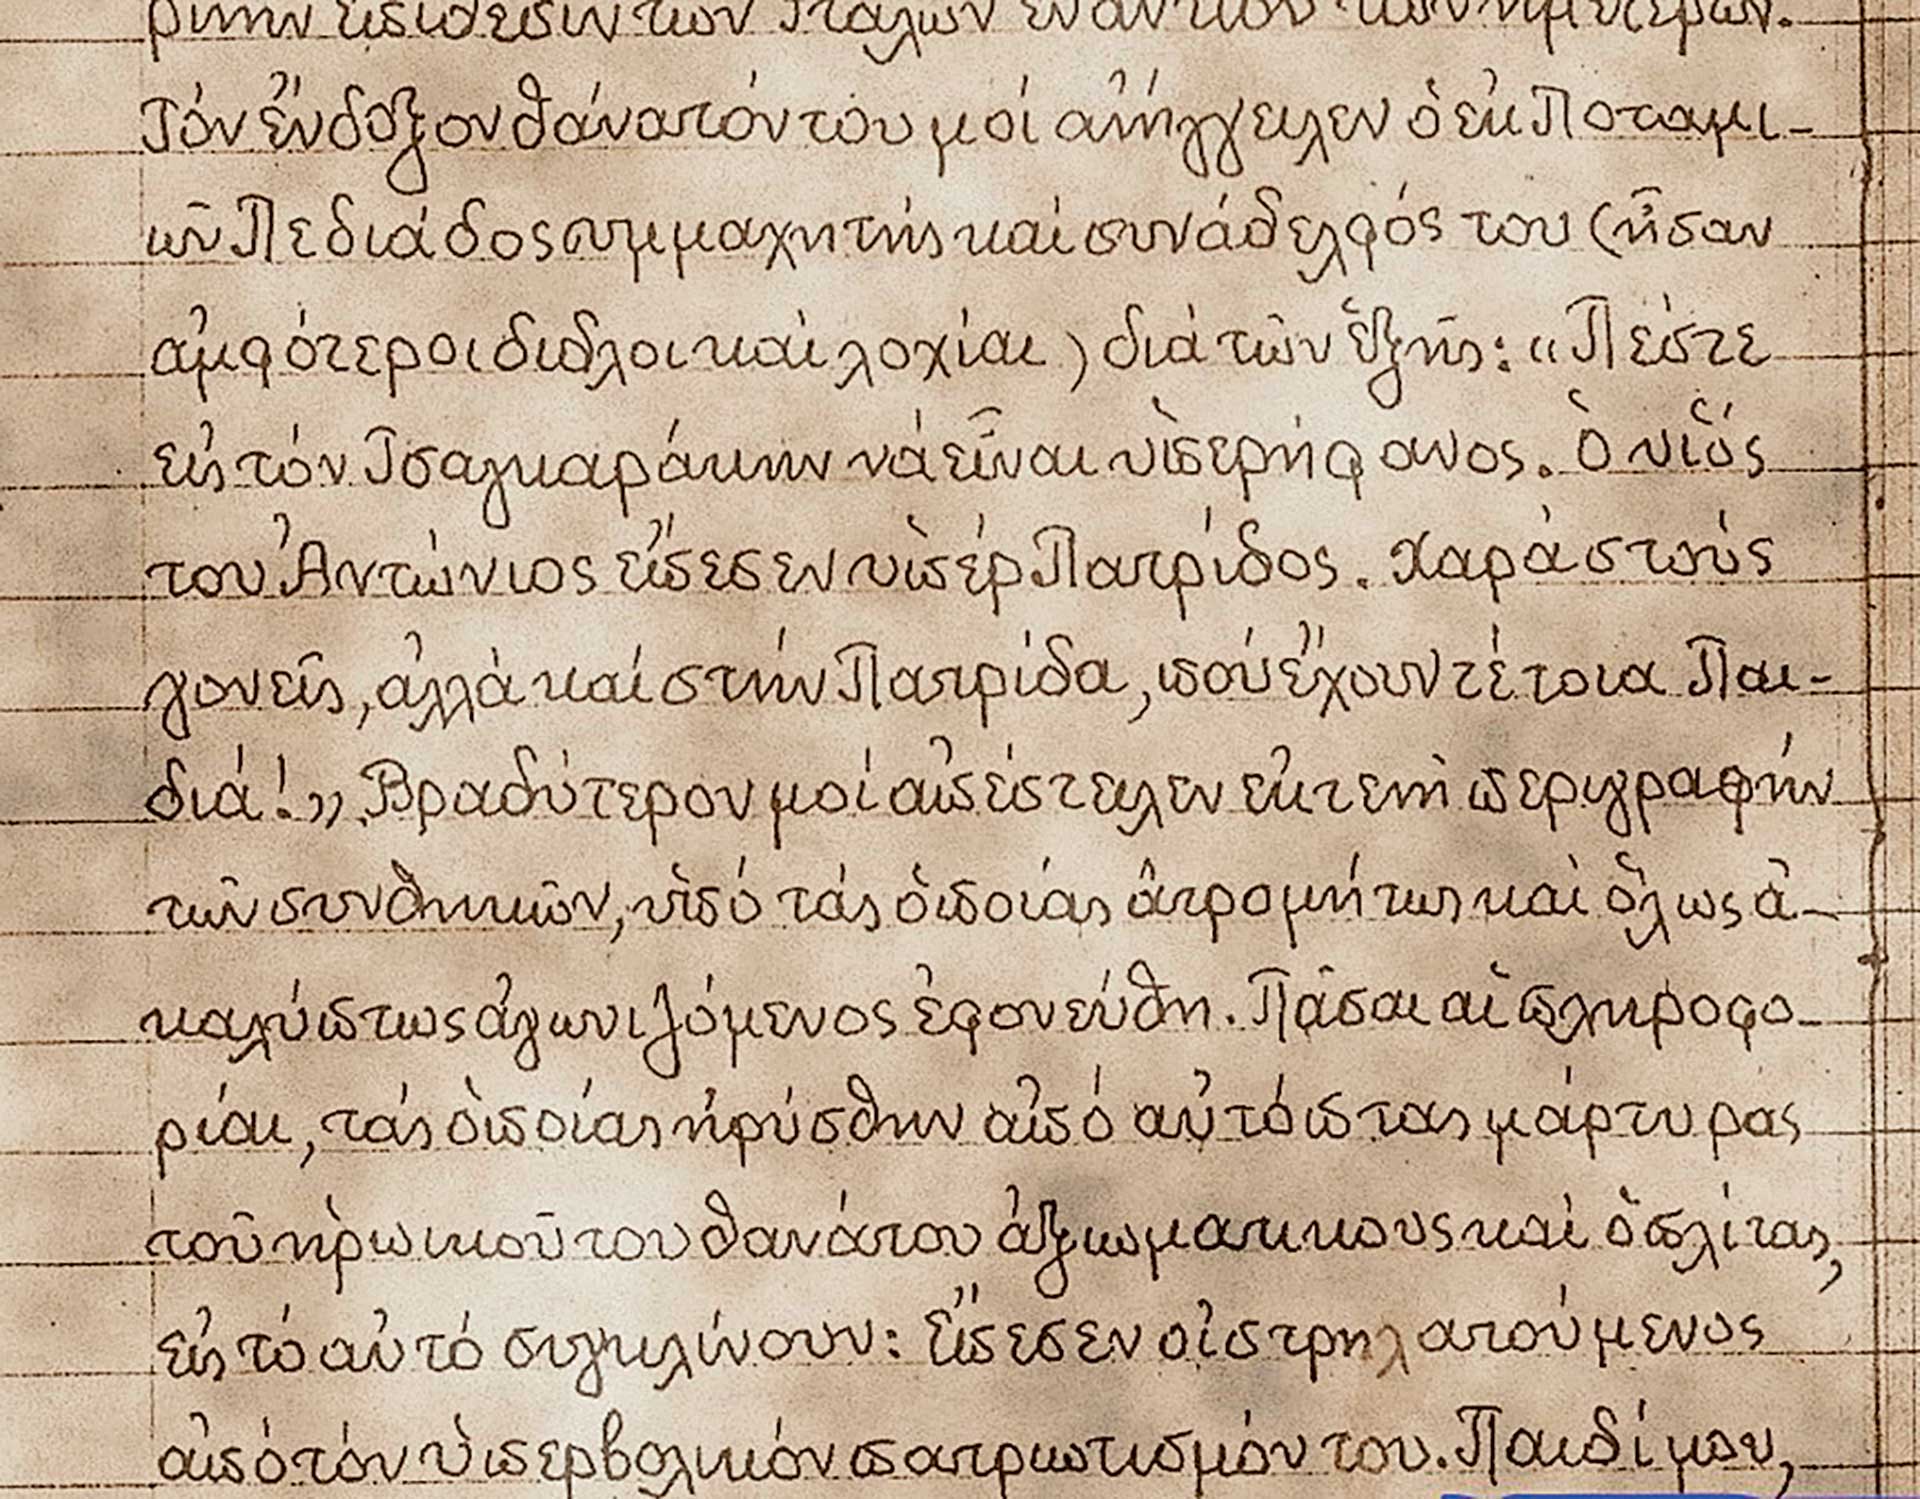 ρινην ἐπίθεσιν των Ἰταλῶν ἐναντίον των ἡμετέρων.
Τόν ἔνδοξον θάνατόν του μοί ἀπήγγειλεν ὁ ἐκ Ποταμι-
ῶν Πεδιάδος συμμαχητής καί συνάδελφός του (ἦσαν
ἀμφότεροι διπλοι καὶ λοχίαι) διά τῶν ἑξῆς: «Πέστε
εἰς τόν Τσαγκαράκην νά εἶναι ὑπερήφανος. Ὁ υἱός
του Ἀντώνιος ἔπεσεν ὑπέρ Πατρίδος. Χαρά στούς
γονεῖς, ἀλλὰ καί στήν Πατρίδα, πού ἔχουν τέτοια Παι-
διά!». Βραδύτερον μοί ἀπέστειλεν ἐκτενῆ περιγραφήν
τῶν συνθηκῶν, ὑπό τάς ὁποίας ἀτρομήτως καὶ ὅλως ἀ-
καλύπτως ἀγωνιζόμενος ἐφονεύθη. Πᾶσαι αἱ πληροφο-
ρίαι, τάς ὁποίας ἠρύσθην ἀπό αὐτόπτας μάρτυρας
τοῦ ἡρωικοῦ του θανάτου ἀξιωματικους καὶ ὁπλίτας,
εἰς τό αὐτό συγκλίνουν: Ἔπεσεν οἰστρηλατούμενος
ἀπό τόν ὑπερβολικόν πατριωτισμόν του. Παιδί μου,